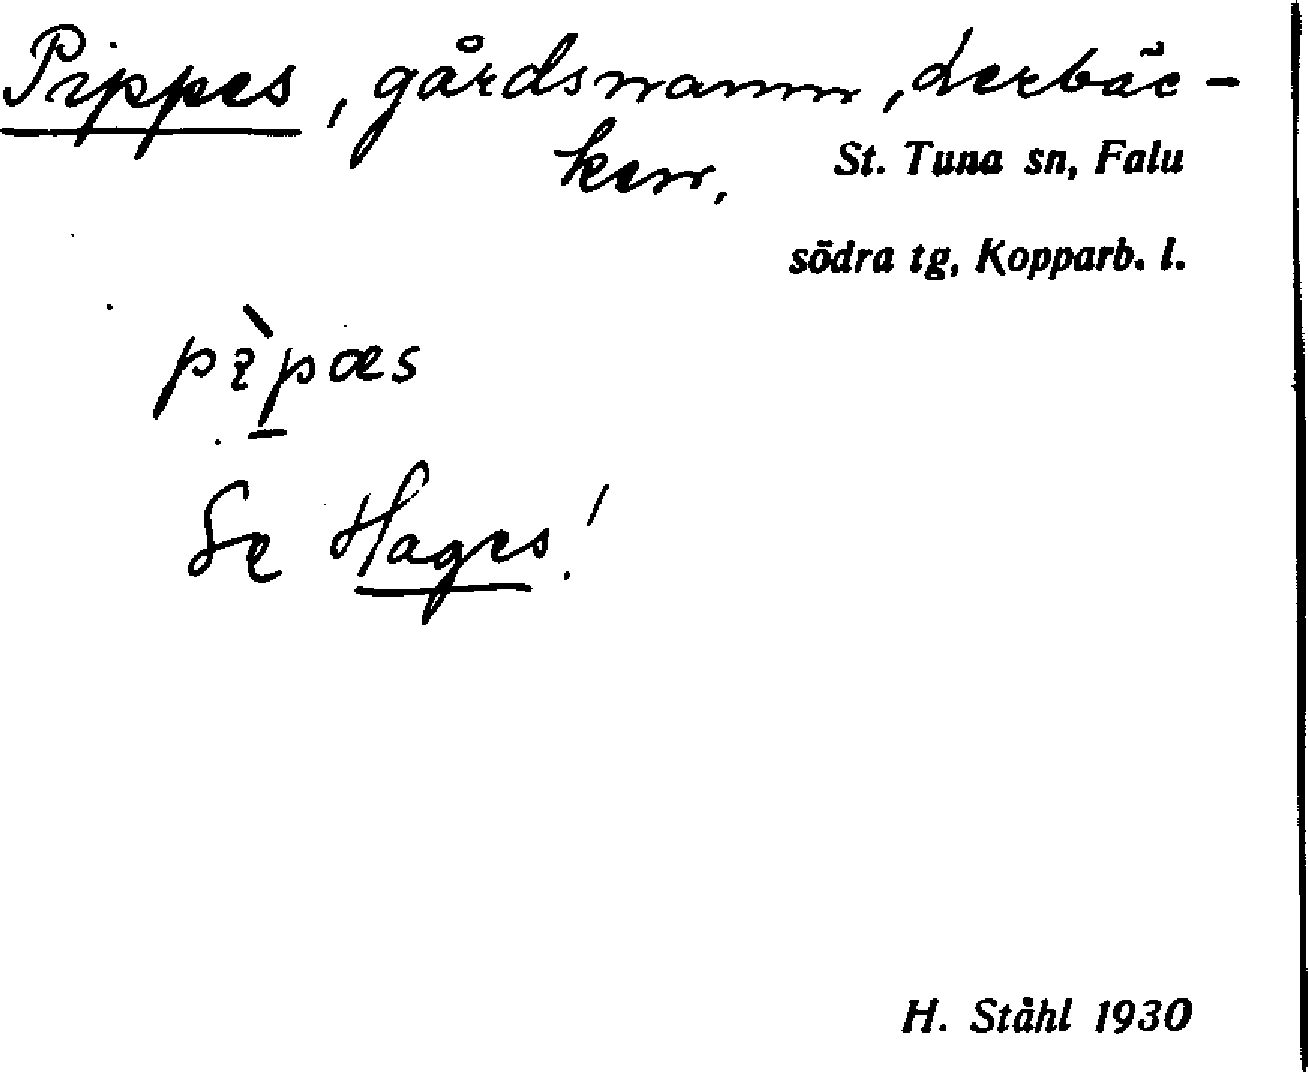 Pippes, gårdsnamn, Lerbäc-
ken, St. Tuna sn, Falu
södra tg, Kopparb. l.
pìpæs
Se Hages!
H. Ståhl 1930